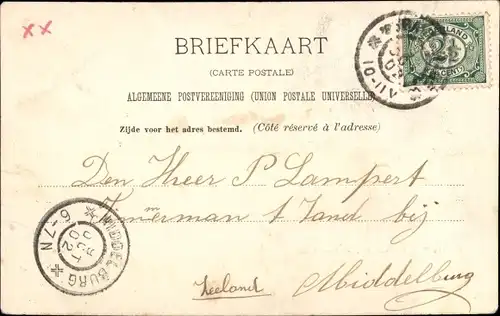 x x
BRIEFKAART
(CARTE POSTALE)
ALGEMEENE POSTVEREENIGING (UNION POSTALE UNIVERSELLE)
Zijde voor het adres bestemd. (Côté réservé à l'adresse)
2½
CENT
Den Heer P Lampert
t Zand bij
Middelburg
Zeeland
MIDDELBURG
OCT
02
6-7N